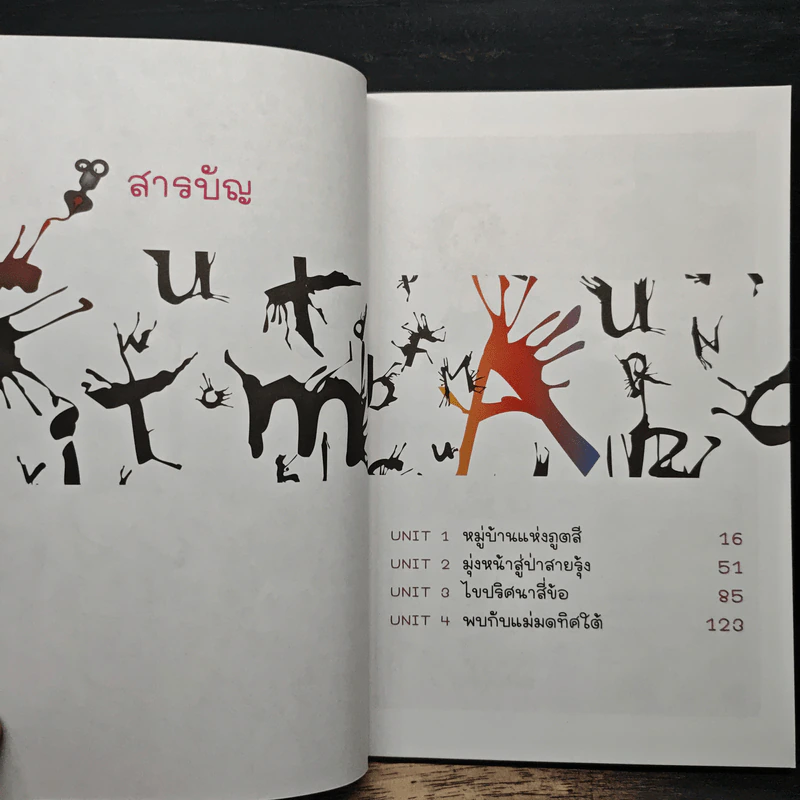 สารบัญ
UNIT 1 หมู่บ้านแห่งภูตสี 16
UNIT 2 มุ่งหน้าสู่ป่าสายรุ้ง 51
UNIT 3 ไขปริศนาสี่ข้อ 85
UNIT 4 พบกับแม่มดทิศใต้ 123